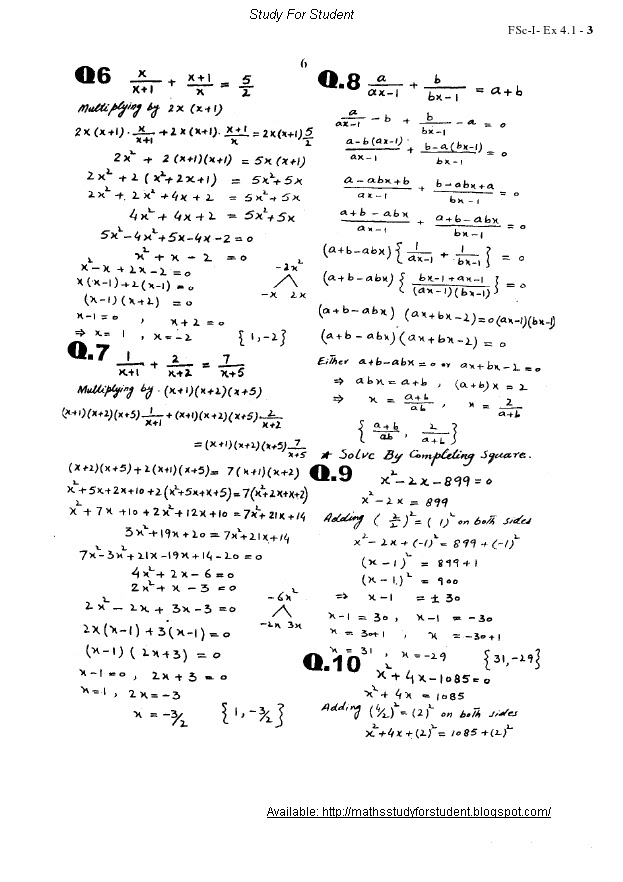 Study For Student
FSc-I- Ex 4.1 - 3
6
Q6 x/(x+1) + (x+1)/x = 5/2
Multiplying by 2x(x+1)
2x(x+1)·x/(x+1) + 2x(x+1)·(x+1)/x = 2x(x+1)5/2
2x² + 2(x+1)(x+1) = 5x(x+1)
2x² + 2(x²+2x+1) = 5x²+5x
2x² + 2x² + 4x + 2 = 5x²+5x
4x² + 4x + 2 = 5x²+5x
5x²-4x²+5x-4x-2=0
x² + x - 2 = 0
x²-x + 2x-2 = 0
-2x²
x(x-1)+2(x-1) = 0
-x 2x
(x-1)(x+2) = 0
x-1=0 , x+2=0
⇒ x= 1 , x=-2 {1,-2}
Q.7 1/(x+1) + 2/(x+2) = 7/(x+5)
Multiplying by (x+1)(x+2)(x+5)
(x+1)(x+2)(x+5) 1/(x+1) + (x+1)(x+2)(x+5)·2/(x+2)
= (x+1)(x+2)(x+5) 7/(x+5)
(x+2)(x+5)+2(x+1)(x+5) = 7(x+1)(x+2)
x²+5x+2x+10+2(x²+5x+x+5)=7(x²+2x+x+2)
x²+7x+10+2x²+12x+10=7x²+21x+14
3x²+19x+20=7x²+21x+14
7x²-3x²+21x-19x+14-20=0
4x²+2x-6=0
2x²+x-3=0
-6x²
2x²-2x+3x-3=0
-2x 3x
2x(x-1)+3(x-1)=0
(x-1)(2x+3) = 0
x-1=0, 2x+3=0
x=1, 2x=-3
x = -3/2 {1,-3/2}
Q.8 a/(ax-1) + b/(bx-1) = a+b
a/(ax-1) - b + b/(bx-1) - a = 0
(a-b(ax-1))/(ax-1) + (b-a(bx-1))/(bx-1) = 0
(a-abx+b)/(ax-1) + (b-abx+a)/(bx-1) = 0
(a+b-abx)/(ax-1) + (a+b-abx)/(bx-1) = 0
(a+b-abx){1/(ax-1) + 1/(bx-1)} = 0
(a+b-abx){(bx-1+ax-1)/((ax-1)(bx-1))} = 0
(a+b-abx) (ax+bx-2)=0(ax-1)(bx-1)
(a+b-abx)(ax+bx-2) = 0
Either a+b-abx=0 or ax+bx-2=0
⇒ abx=a+b , (a+b)x = 2
⇒ x = (a+b)/ab , x = 2/(a+b)
{(a+b)/ab , 2/(a+b)}
★ Solve By Completing Square.
Q.9 x²-2x-899=0
x²-2x = 899
Adding (2/2)²=(1)² on both sides
x²-2x+(-1)²=899+(-1)²
(x-1)² = 899+1
(x-1)² = 900
⇒ x-1 = ±30
x-1=30, x-1=-30
x = 30+1 , x = -30+1
x = 31 , x = -29 {31,-29}
Q.10 x²+4x-1085=0
x²+4x = 1085
Adding (4/2)²=(2)² on both sides
x²+4x+(2)²=1085+(2)²
Available: http://mathsstudyforstudent.blogspot.com/